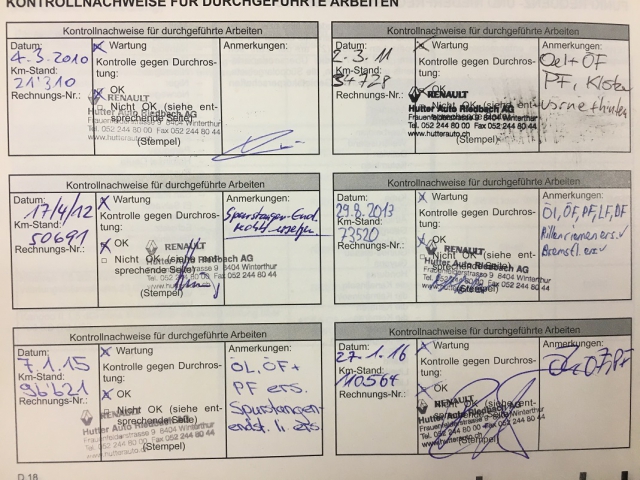 KONTROLLNACHWEISE FÜR DURCHGEFÜHRTE ARBEITEN
Kontrollnachweise für durchgeführte Arbeiten
Datum:
4.3.2010
Km-Stand:
21'310
Rechnungs-Nr.:
Wartung
Kontrolle gegen Durchros-
tung:
OK
Nicht OK (siehe ent-
sprechende Seite)
RENAULT
Hutter Auto Riedbach AG
Frauenfelderstrasse 9 8404 Winterthur
Tel. 052 244 80 00 Fax 052 244 80 44
www.hutterauto.ch
(Stempel)
Anmerkungen:
Kontrollnachweise für durchgeführte Arbeiten
Datum:
2.3.11
Km-Stand:
Rechnungs-Nr.:
Wartung
Kontrolle gegen Durchros-
tung:
OK
Nicht OK (siehe ent-
RENAULT
Hutter Auto Riedbach AG
Frauenfelderstrasse 9 8404 Winterthur
Tel. 052 244 80 00 Fax 052 244 80 44
www.hutterauto.ch
(Stempel)
Anmerkungen:
Oel + ÖF
PF,
Kontrollnachweise für durchgeführte Arbeiten
Datum:
17/4/12
Km-Stand:
50691
Rechnungs-Nr.:
Wartung
Kontrolle gegen Durchros-
tung:
OK
Nicht OK (siehe ent-
sprechende Seite)
RENAULT
Hutter Auto Riedbach AG
Frauenfelderstrasse 9 8404 Winterthur
Tel. 052 244 80 00 Fax 052 244 80 44
(Stempel)
Anmerkungen:
Spurstangen-End.
Kontrollnachweise für durchgeführte Arbeiten
Datum:
29.8.2013
Km-Stand:
73520
Rechnungs-Nr.:
Wartung
Kontrolle gegen Durchros-
tung:
OK
Nicht OK (siehe ent-
RENAULT
Hutter Auto Riedbach AG
Frauenfelderstrasse 9 8404 Winterthur
Tel. 052 244 80 00 Fax 052 244 80 44
(Stempel)
Anmerkungen:
Öl, ÖF, PF, LF, DF
Rillenriemen ers. ✓
Bremsfl. erz ✓
Kontrollnachweise für durchgeführte Arbeiten
Datum:
7.1.15
Km-Stand:
96621
Rechnungs-Nr.:
Wartung
Kontrolle gegen Durchros-
tung:
OK
Nicht OK (siehe ent-
sprechende Seite)
RENAULT
Hutter Auto Riedbach AG
Frauenfelderstrasse 9 8404 Winterthur
Tel. 052 244 80 00 Fax 052 244 80 44
www.hutterauto.ch
(Stempel)
Anmerkungen:
ÖL, ÖF +
PF ers.
Spurstangen-
endst. li ers
Kontrollnachweise für durchgeführte Arbeiten
Datum:
27.1.16
Km-Stand:
110564
Rechnungs-Nr.:
Wartung
Kontrolle gegen Durchros-
tung:
OK
Nicht OK (siehe ent-
RENAULT
Hutter Auto Riedbach AG
Frauenfelderstrasse 9 8404 Winterthur
Tel. 052 244 80 00 Fax 052 244 80 44
www.hutterauto.ch
(Stempel)
Anmerkungen:
D 18